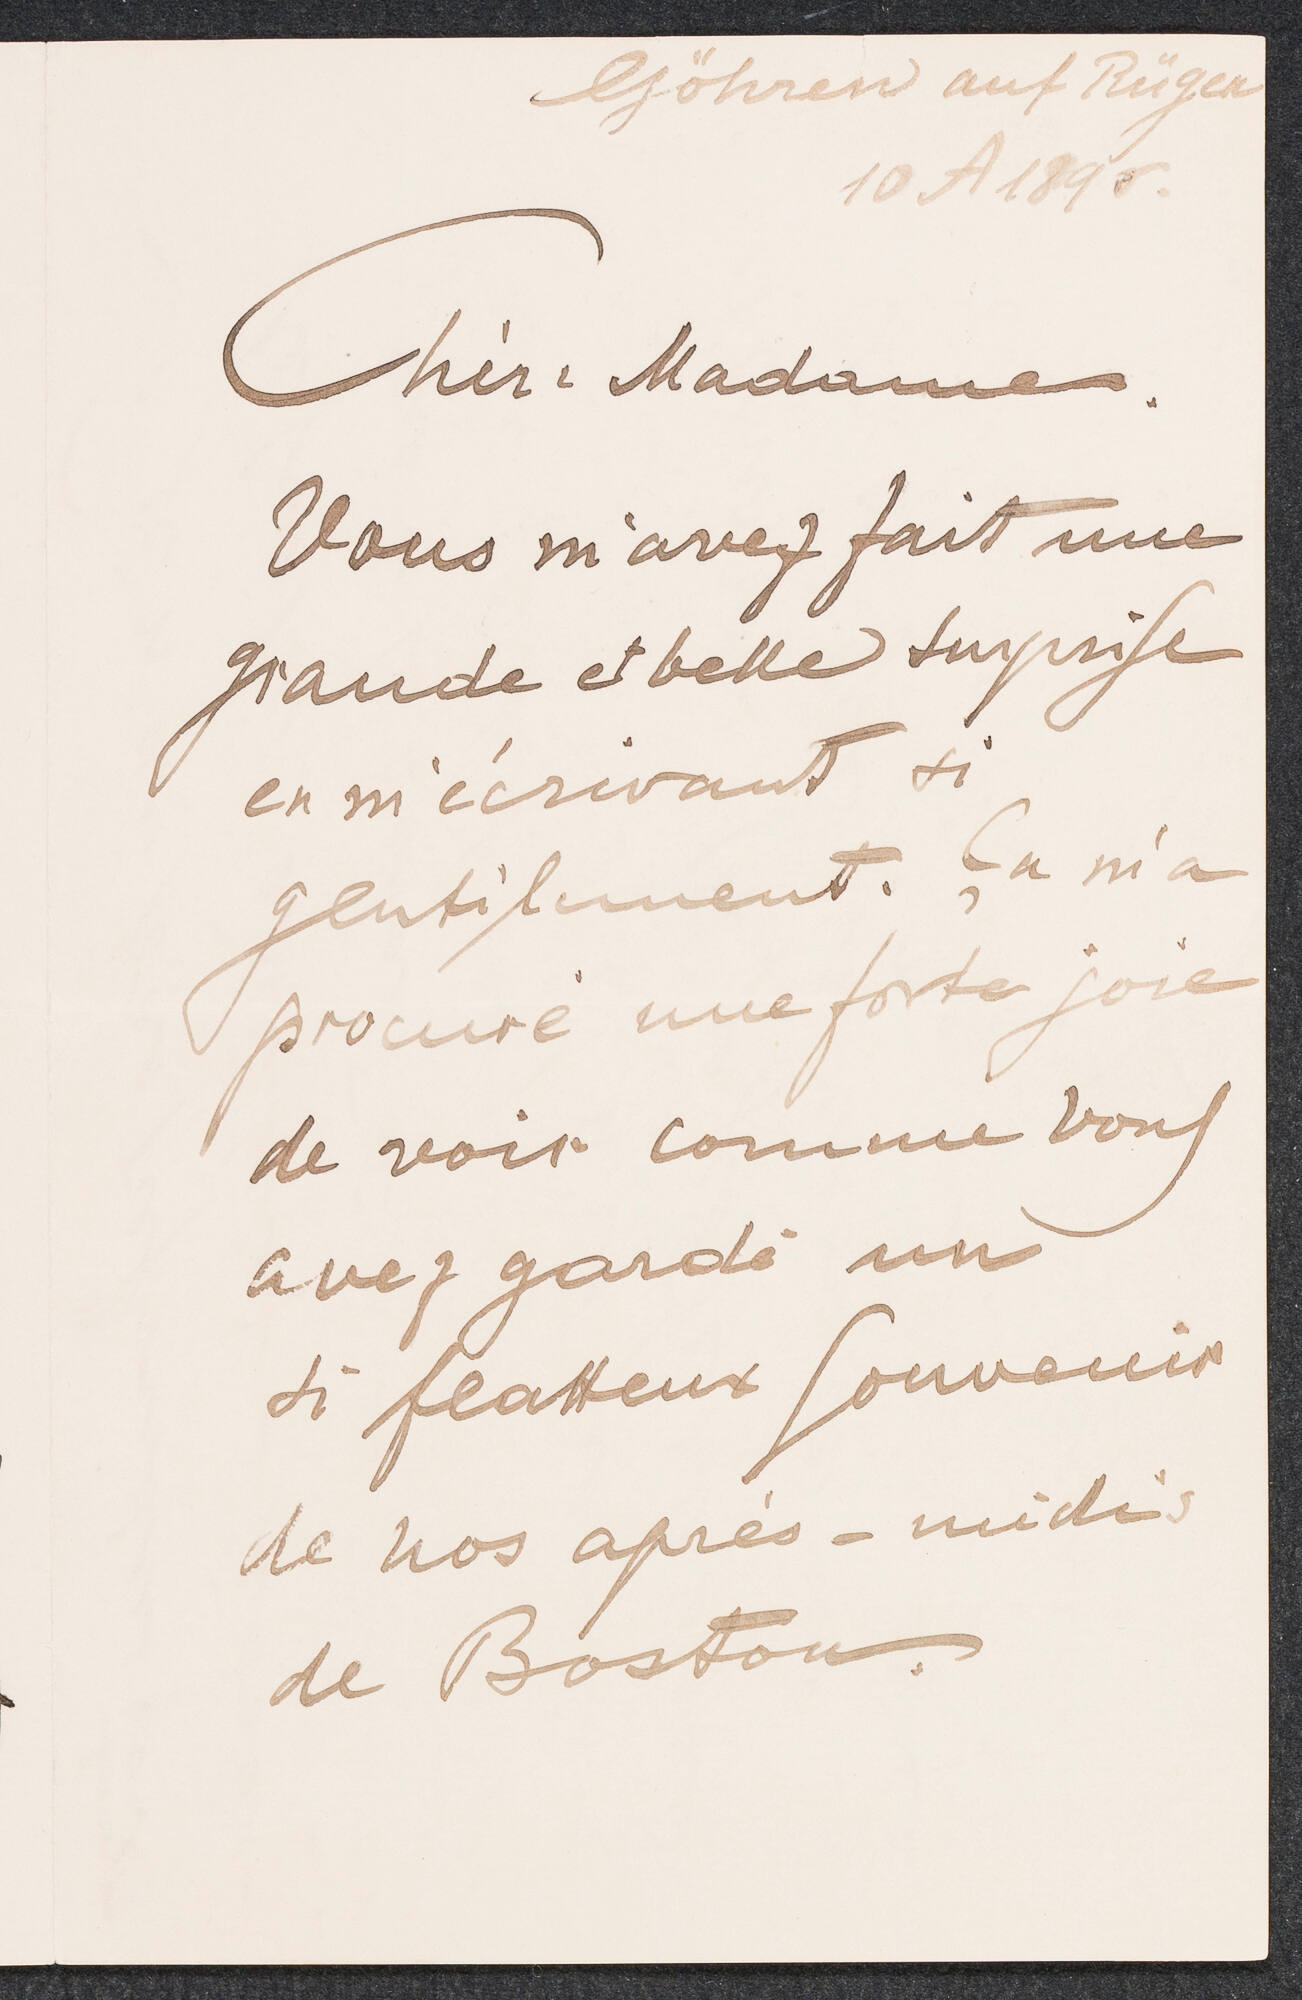 Göhren auf Rügen
10 A 189
Chère Madame.
Vous m'avez fait une
grande et belle surprise
en m'écrivant si
gentilment. Ça m'a
procuré une forte joie
de voir comme vous
avez gardé un
si flatteux souvenir
de nos après-midis
de Boston.